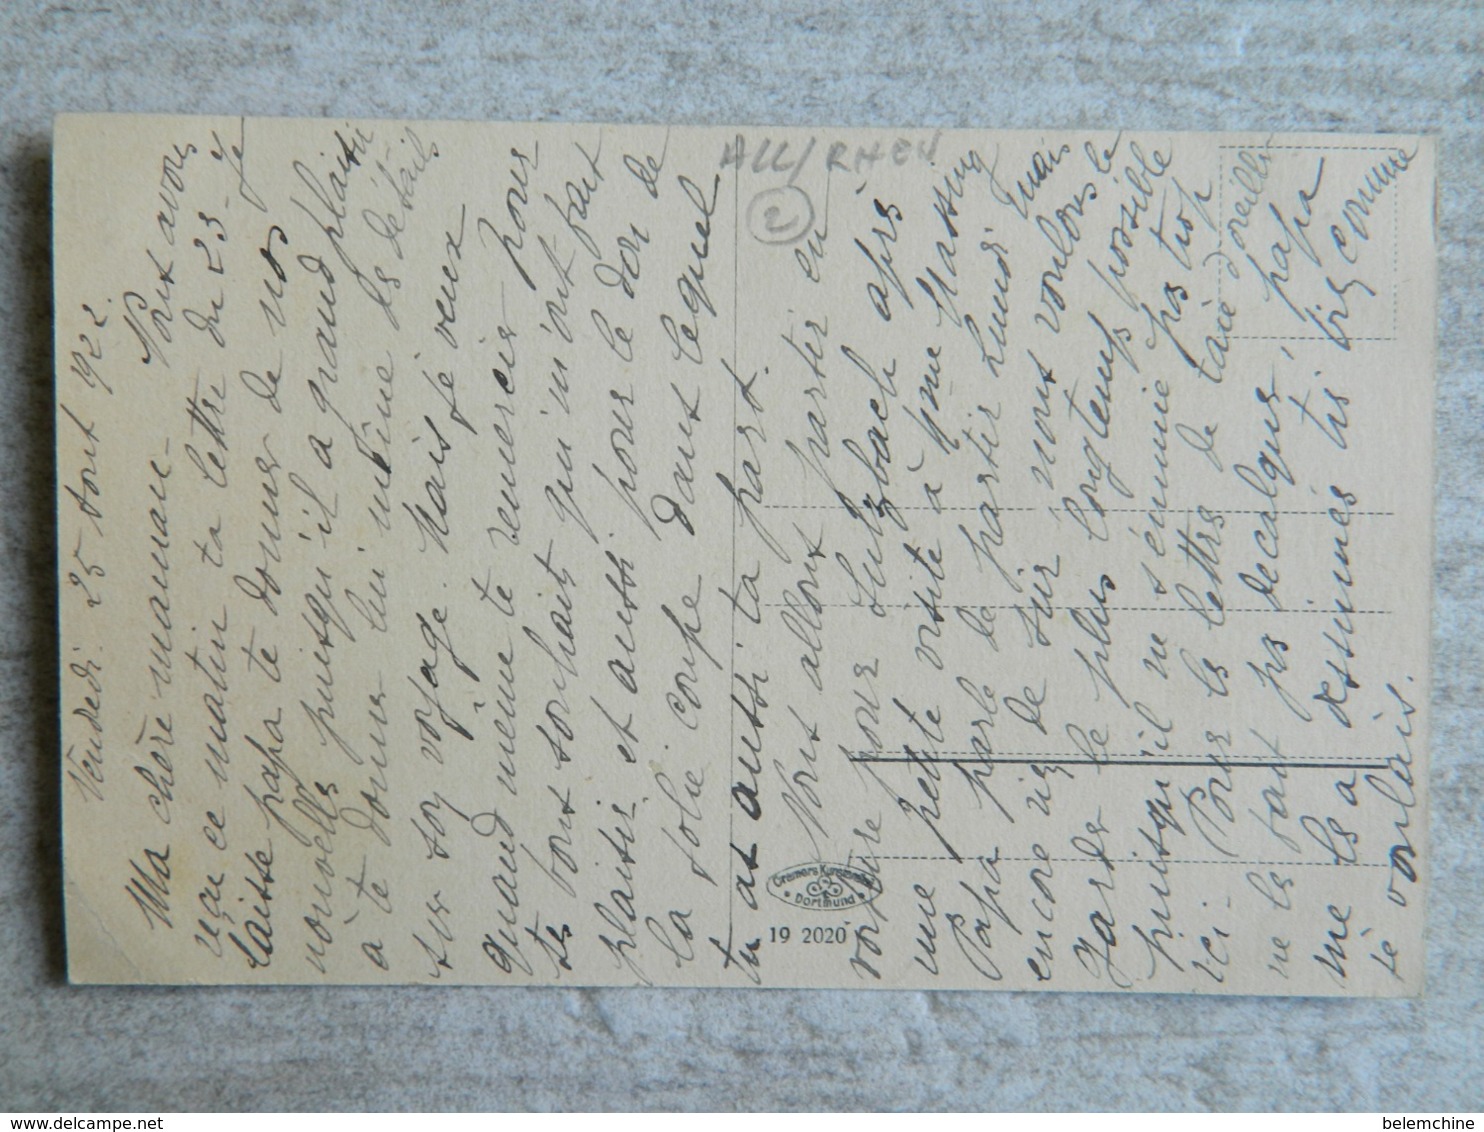 Vendredi 25 Aout 1922.
Ma chère maman - Nous avons
reçu ce matin ta lettre du 23 - Je
laisse papa te donner de nos
nouvelles puisqu'il a grand plaisir
à te donner lui même des détails
sur son voyage. Mais je veux
quand même te remercier pour
tes bons souhaits qui m'ont fait
plaisir, et aussi pour le don de
la jolie coupe dans lequel
tu as aussi ta part.
Nous allons partir en
voiture pour Sulzbach après
une petite visite à Mme Massing
Papa parle de partir Lundi mais
encore rien de sûr nous voulons le
garder le plus longtemps possible
puisqu'il ne s'ennuie pas trop
ici - Pour les lettres de taie d'oreiller
ne les fait pas decalquer, papa
me les a dessinées très bien comme
je voulais.
ALL/RHEN
2
Cramers Kunstanstalt
Dortmund
19 2020
delcampe.net
belemchine